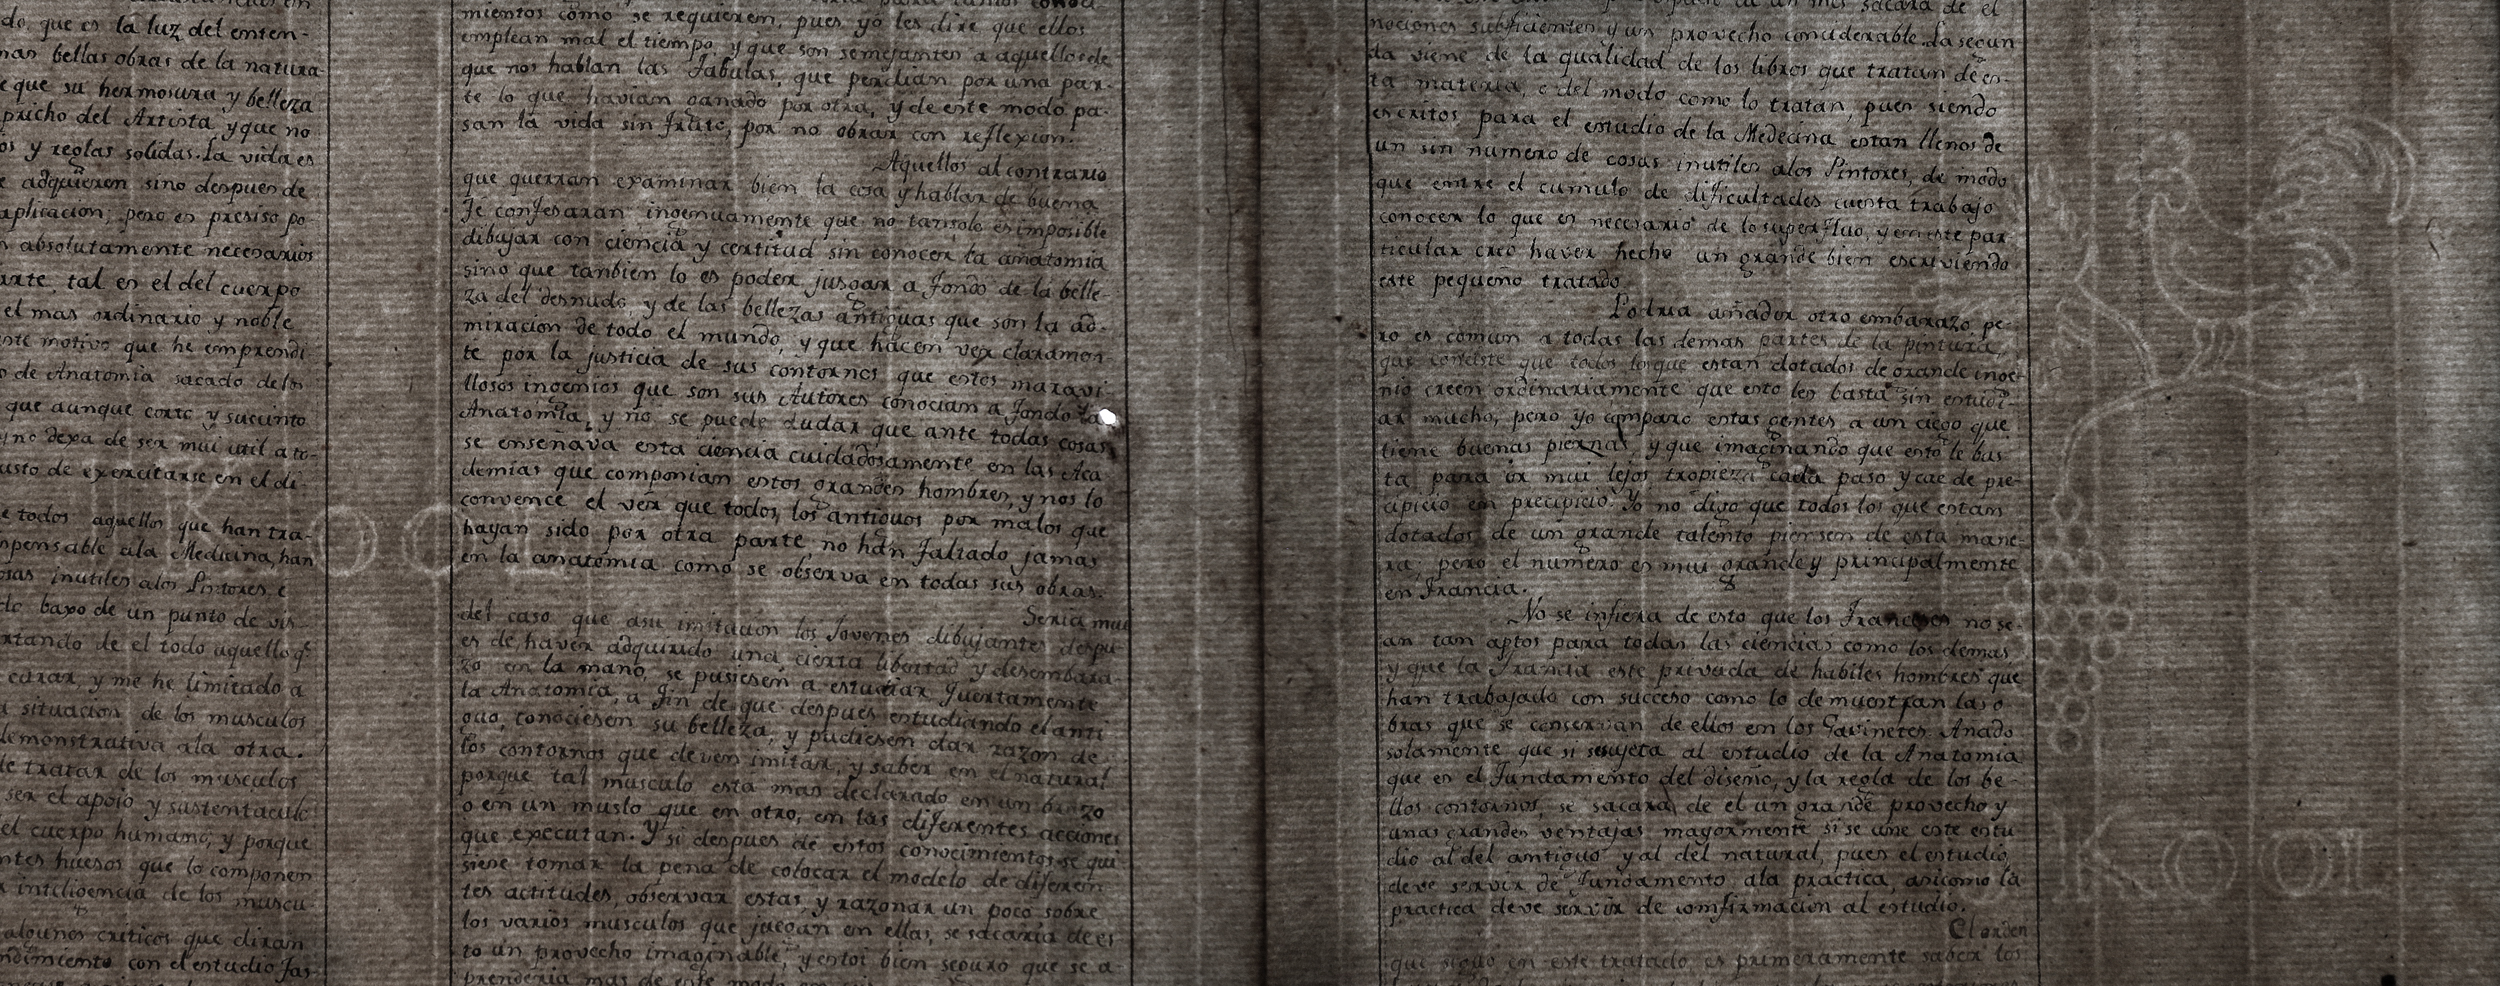 do, que es la luz del enten-
nas bellas obras de la natura
e que su hermosura y belleza
pricho del Artista y que no
os y reglas solidas. la vida es
e adquieren sino despues de
aplicacion; pero es presiso po
n absolutamente necesarios
arte, tal es el del cuerpo
el mas ordinario y noble
nte motivo que he emprendi
o de Anatomia sacado delos
que aunque corto y sucinto
no dexa de ser mui util a to-
usto de exercitarse en el di-
e todos aquellos que han tra-
npensable ala Medicina, han
osas inutiles alos Pintores, e
do baxo de un punto de vis-
rtando de el todo aquello q.
curar, y me he limitado a
situacion de los musculos
demonstrativa ala otra.
de tratar de los musculos
ser el apoio y sustentaculo
el cuerpo humano, y porque
ntes huesos que lo componen
inteligencia de los muscu-
algunos criticos que diran
ndimiento con el estudio fas-
mientos como se requieren, pues yo les dire que ellos
emplean mal el tiempo, y que son semejantes a aquellos de
que nos hablan las Fabulas, que perdian por una par-
te lo que havian ganado por otra, y de este modo pa-
san la vida sin fruto, por no obrar con reflexion.
Aquellos al contrario
que querran examinar bien la cosa y hablar de buena
fe confesaran ingenuamente que no tansolo es imposible
dibujar con ciencia y certitud sin conocer la anatomia
sino que tanbien lo es poder jusgar a fondo de la belle-
za del desnudo, y de las bellezas antiguas que son la ad-
miracion de todo el mundo, y que hacen ver claramen-
te por la justicia de sus contornos que estos maravi
llosos ingenios que son sus Autores conocian a fondo la
Anatomia, y no se puede dudar que ante todas cosas
se enseñava esta ciencia cuidadosamente en las Aca
demias que componian estos grandes hombres, y nos lo
convence el ver que todos los antiguos por malos que
hayan sido por otra parte, no han faltado jamas
en la anatomia como se observa en todas sus obras.
Seria mui
del caso que asu imitacion los Jovenes dibujantes despu-
es de haver adquirido una cierta libertad y desembara-
zo en la mano, se pusiesen a estudiar fuertamente
la Anatomia, a fin de que despues estudiando el anti
guo, conociesen su belleza, y pudiesen dar razon de
los contornos que deven imitar, y saber en el natural
porque tal musculo esta mas declarado en un brazo
o en un muslo que en otro, en las diferentes acciones
que executan. Y si despues de estos conocimientos se qui
siese tomar la pena de colocar el modelo de diferen
tes actitudes, observar estas, y razonar un poco sobre
los varios musculos que juegan en ellas, se sacaria de es
to un provecho imaginable, y estoi bien seguro que se a-
prenderia mas de este modo en
sacara de el
nociones subficientes y un provecho considerable. La segun
da viene de la qualidad de los libros que tratan de es-
ta materia, o del modo como lo tratan, pues siendo
escritos para el estudio de la Medecina estan llenos de
un sin numero de cosas inutiles alos Pintores, de modo
que entre el cumulo de dificultades cuesta trabajo
conocer lo que es necesario de lo superfluo, y en este par
ticular creo haver hecho un grande bien escriviendo
este pequeño tratado.
Podria añader otro embarazo, pe-
ro es comun a todas las demas partes de la pintura,
que consiste que todos losque estan dotados de grande inge-
nio creen ordinariamente que esto les basta sin estudi-
ar mucho, pero yo comparo estas gentes a un ciego que
tiene buenas piernas, y que imaginando que esto le bas
ta para ir mui lejos tropieza cada paso y cae de pre-
cipicio en precipicio. Yo no digo que todos los que estan
dotados de un grande talento piensen de esta mane-
ra; pero el numero es mui grande y principalmente
en Francia.
No se infiera de esto que los Franceses no se-
an tan aptos para todas las ciencias como los demas,
y que la Francia este privada de habiles hombres que
han trabajado con succeso como lo demuestran las o
bras que se conservan de ellos en los Gavinetes. Añado
solamente que si se sujeta al estudio de la Anatomia
que es el fundamento del diseño, y la regla de los be-
llos contornos, se sacara de el un grande provecho y
unas grandes ventajas mayormente si se une este estu
dio al del antiguo y al del natural, pues el estudio,
deve servir de fundamento ala practica, asicomo la
practica deve servir de comfirmacion al estudio.
El orden
que siguo en este tratado, es primeramente saber los
KOOL